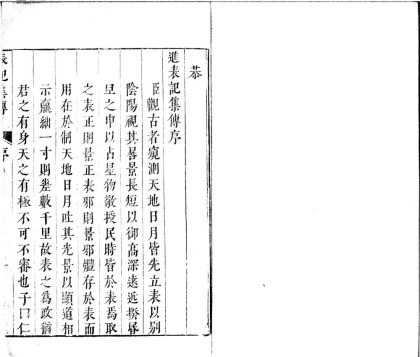 恭
進表記集傳序
臣觀古者窺測天地日月皆先立表以別
陰陽視其晷景長短以御高深遠近揆
之中以占星物敬授民時皆於表焉取
之表正則景正表邪則景邪體存於表而
用在於制天地日月吐其光景以顯道相
示蠃絀一寸則差數千里故表之為政猶
君之有身天之有極不可不審也子曰仁
表記集傳 序